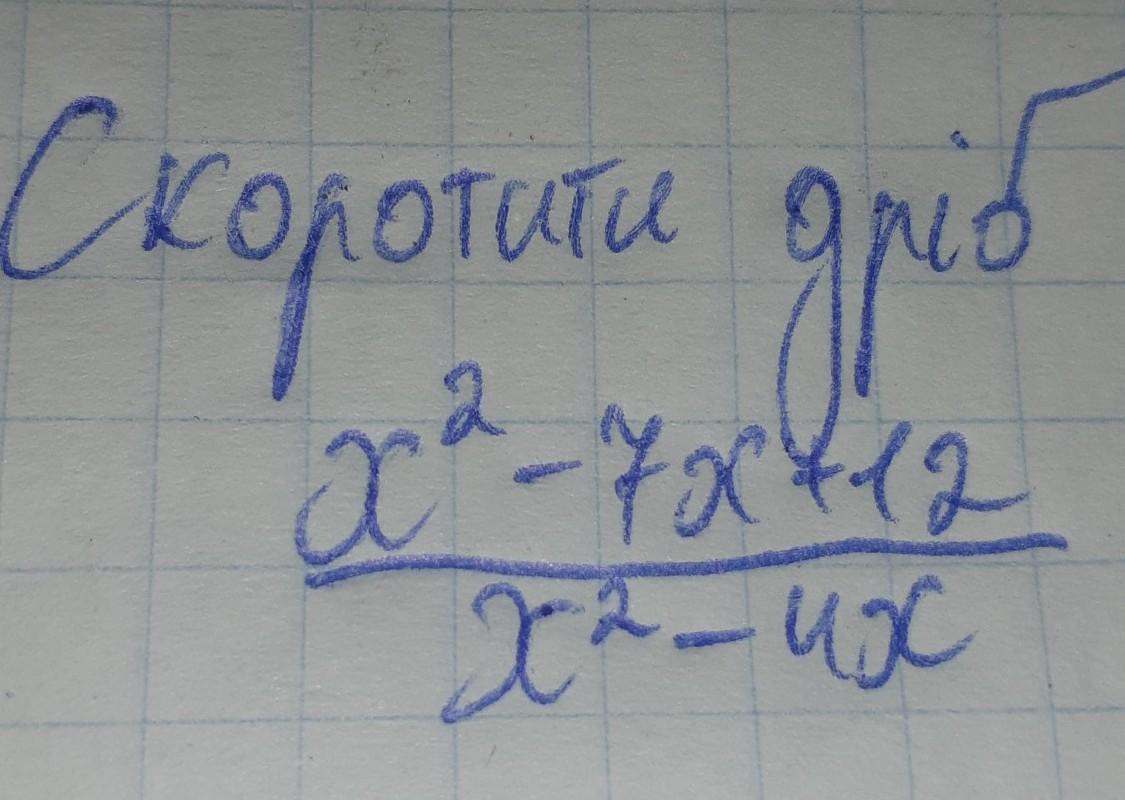 Скоротити дріб
x² - 7x + 12
x² - 4x